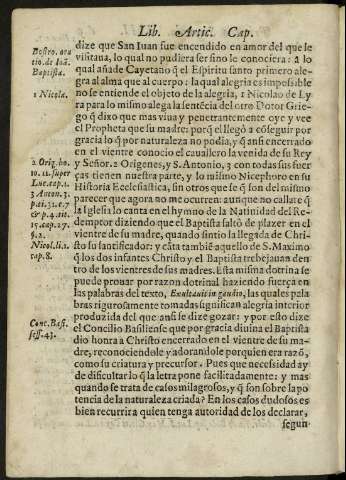 Lib. Artic. Cap.
dize que San Iuan fue encendido en amor del que le
visitaua, lo qual no pudiera ser sino le conociera: a lo
qual añade Cayetano q̃ el Espiritu santo primero ale-
gra al alma que al cuerpo: la qual alegria es impossible
no se entiende el objeto de la alegria, 1 Nicolao de Ly
ra para lo mismo alega la sentēcia del otro Dotor Grie-
go q̃ dixo que mas viua y penetrantemente oye y vee
el Propheta que su madre: porq̃ el llegó a cōseguir por
gracia lo q̃ por naturaleza no podia, y q̃ ansi encerrado
en el vientre conocio el cauallero la venida de su Rey
y Señor. 2 Origenes, y S. Antonio, 3 con todas sus fuer
ças tienen nuestra parte, y lo mismo Nicephoro en su
Historia Ecclesiastica, sin otros que se q̃ son del mismo
parecer que agora no me ocurren: aunque no callaré q̃
la Iglesia lo canta en el hymno de la Natiuidad del Re-
demptor diziendo que el Baptista saltò de plazer en el
vientre de su madre, quando sintio la llegada de Chri-
sto su santificador: y cāta tambiē aquello de S. Maximo
q̃ los dos infantes Christo y el Baptista trebejauan den
tro de los vientres de sus madres. Esta misma dotrina se
puede prouar por razon dotrinal haziendo fuerça en
las palabras del texto, Exultauit in gaudio, las quales pala
bras rigurosamente tomadas significan alegria interior
produzida del que ansi se dize gozar: y por esto dize
el Concilio Basiliense que por gracia diuina el Baptista
dio honra a Christo encerrado en el vientre de su ma-
dre, reconociendole y adorandole por quien era razō,
como su criatura y precursor. Pues que necesidad ay
de dificultar lo q̃ la letra pone facilitadamente: y mas
quando se trata de casos milagrosos, y q̃ son sobre la po
tencia de la naturaleza criada? En los casos dudosos es
bien recurrir a quien tenga autoridad de los declarar,
segun
ratio. de Ioā.
Baptista.
1 Nicola.
2 Orig. ho.
10. in super
Luc. cap. 1.
3 Anton. 3.
& p. 4. tit.
15. cap. 17.
Nicol. li. 1.
cap. 8.
Conc. Basi.
sess. 43.